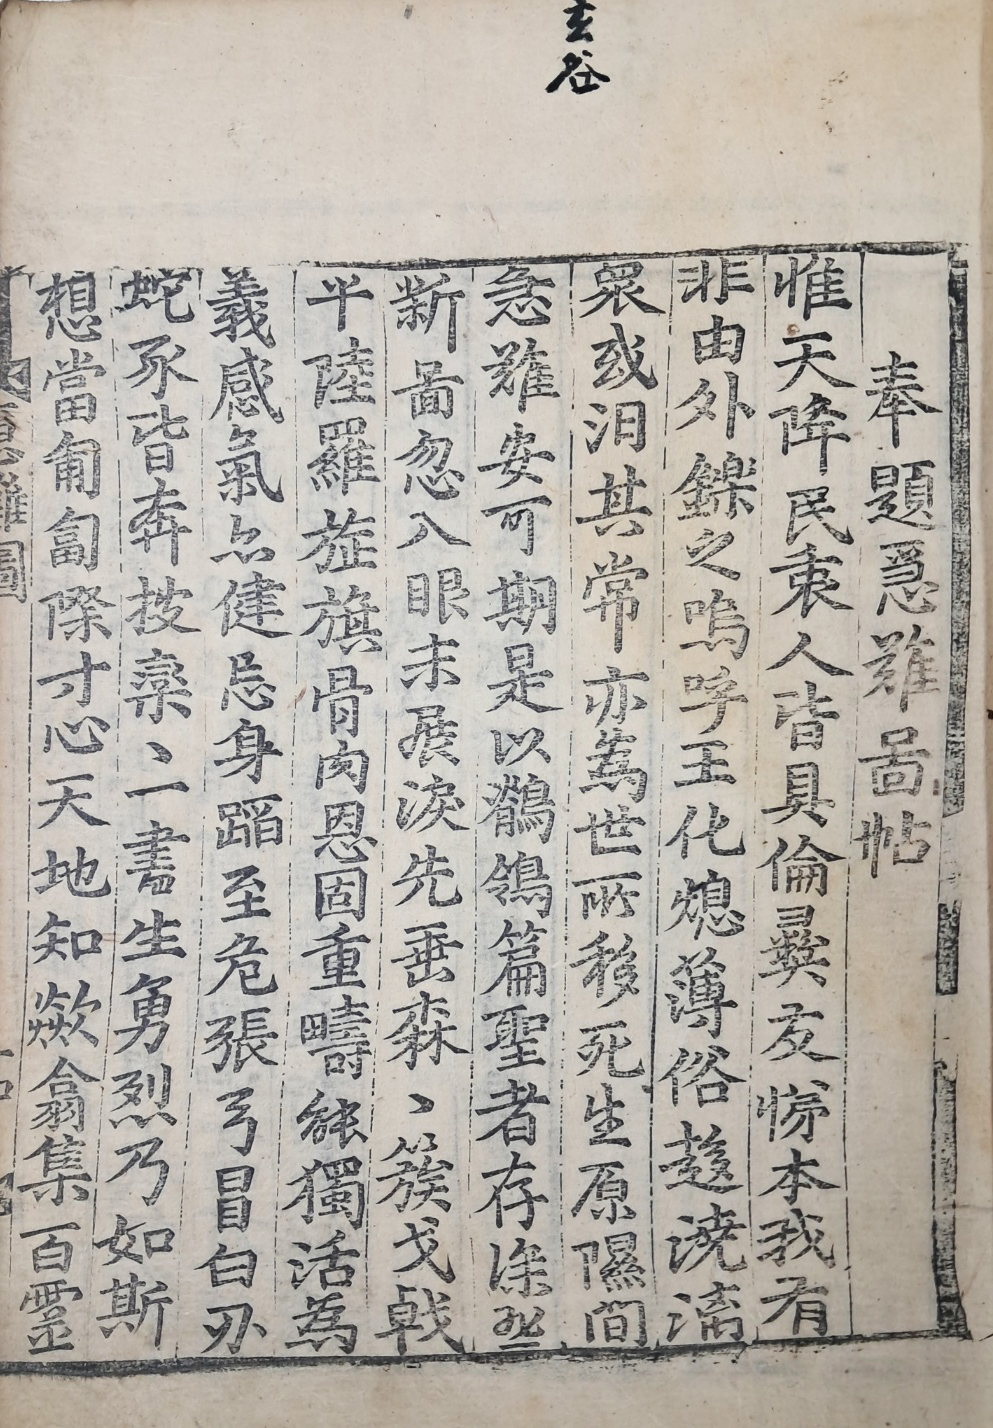 玄谷
奉題急難啚帖
惟天降民衷人皆具倫彛友悌本我有
非由外鑠之嗚呼王化熄薄俗趍澆漓
衆或汨其常亦為世所移死生原隰間
急難安可期是以鶺鴒篇聖者存深
斯啚忽入眼未展淚先垂森〻簇戈戟
平陸羅旌旗骨肉恩固重疇能獨活為
義感氣亦健忘身蹈至危張弓冒白刃
蛇豕皆奔披欒〻一書生勇烈乃如斯
想當匍匐際寸心天地知歘翕集百靈
急難圖